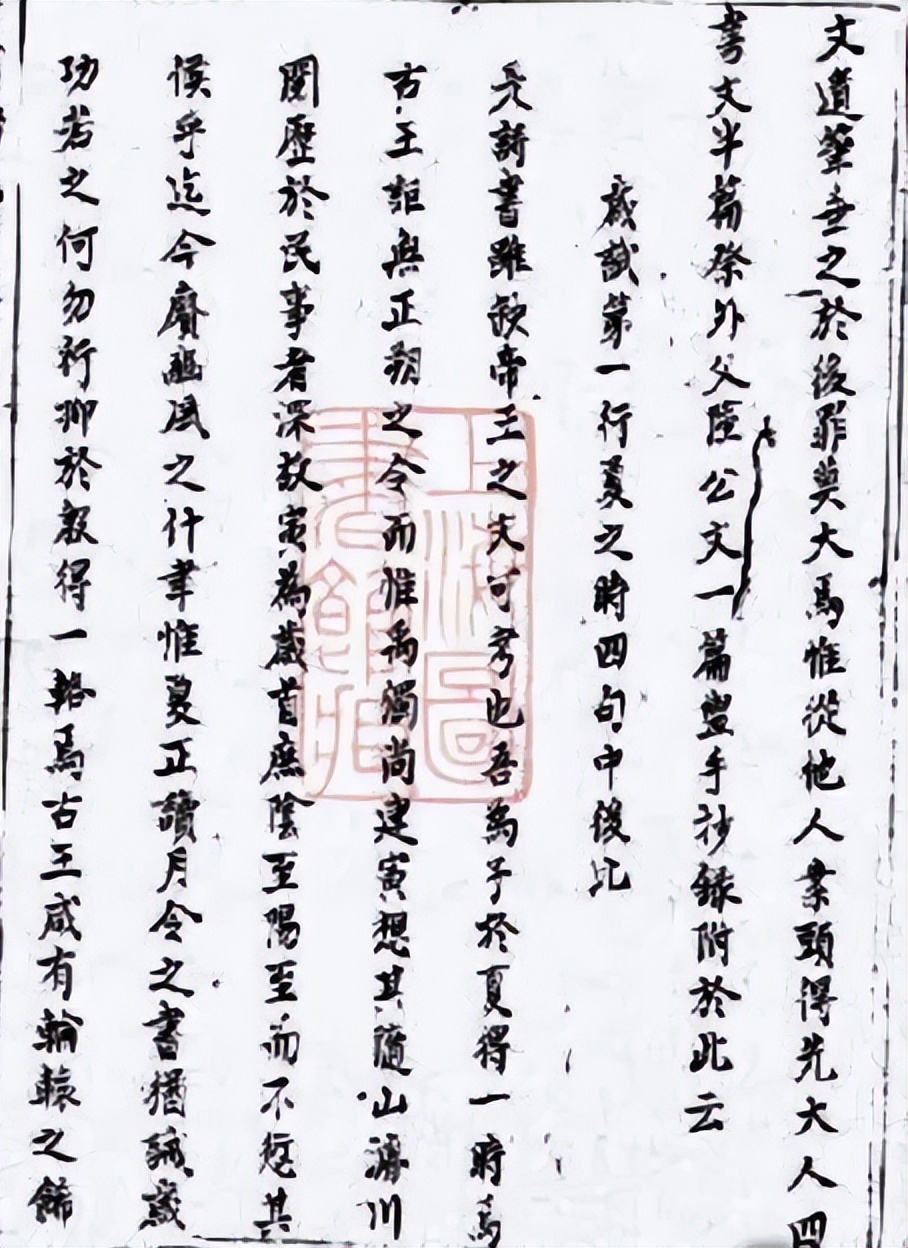 文遺筆垂之於後罪莫大焉惟從他人案頭得先大人四
書文半篇祭外父陸公文一篇豐手抄録附於此云
歲試第一行夏之時四句中後比
夫詩書雖缺帝王之文可考也吾爲子於夏得一時焉
古王詎無正朔之令而惟禹獨尚建寅想其隨山濬川
閱歷於民事者深故寅為歲首庶陰至陽至而不愆其
候乎迄今賡豳風之什聿惟夏正讀月令之書猶誠
功若之何勿行抑於殷得一輅焉古王咸有輪轅之飾
上海圖書館藏